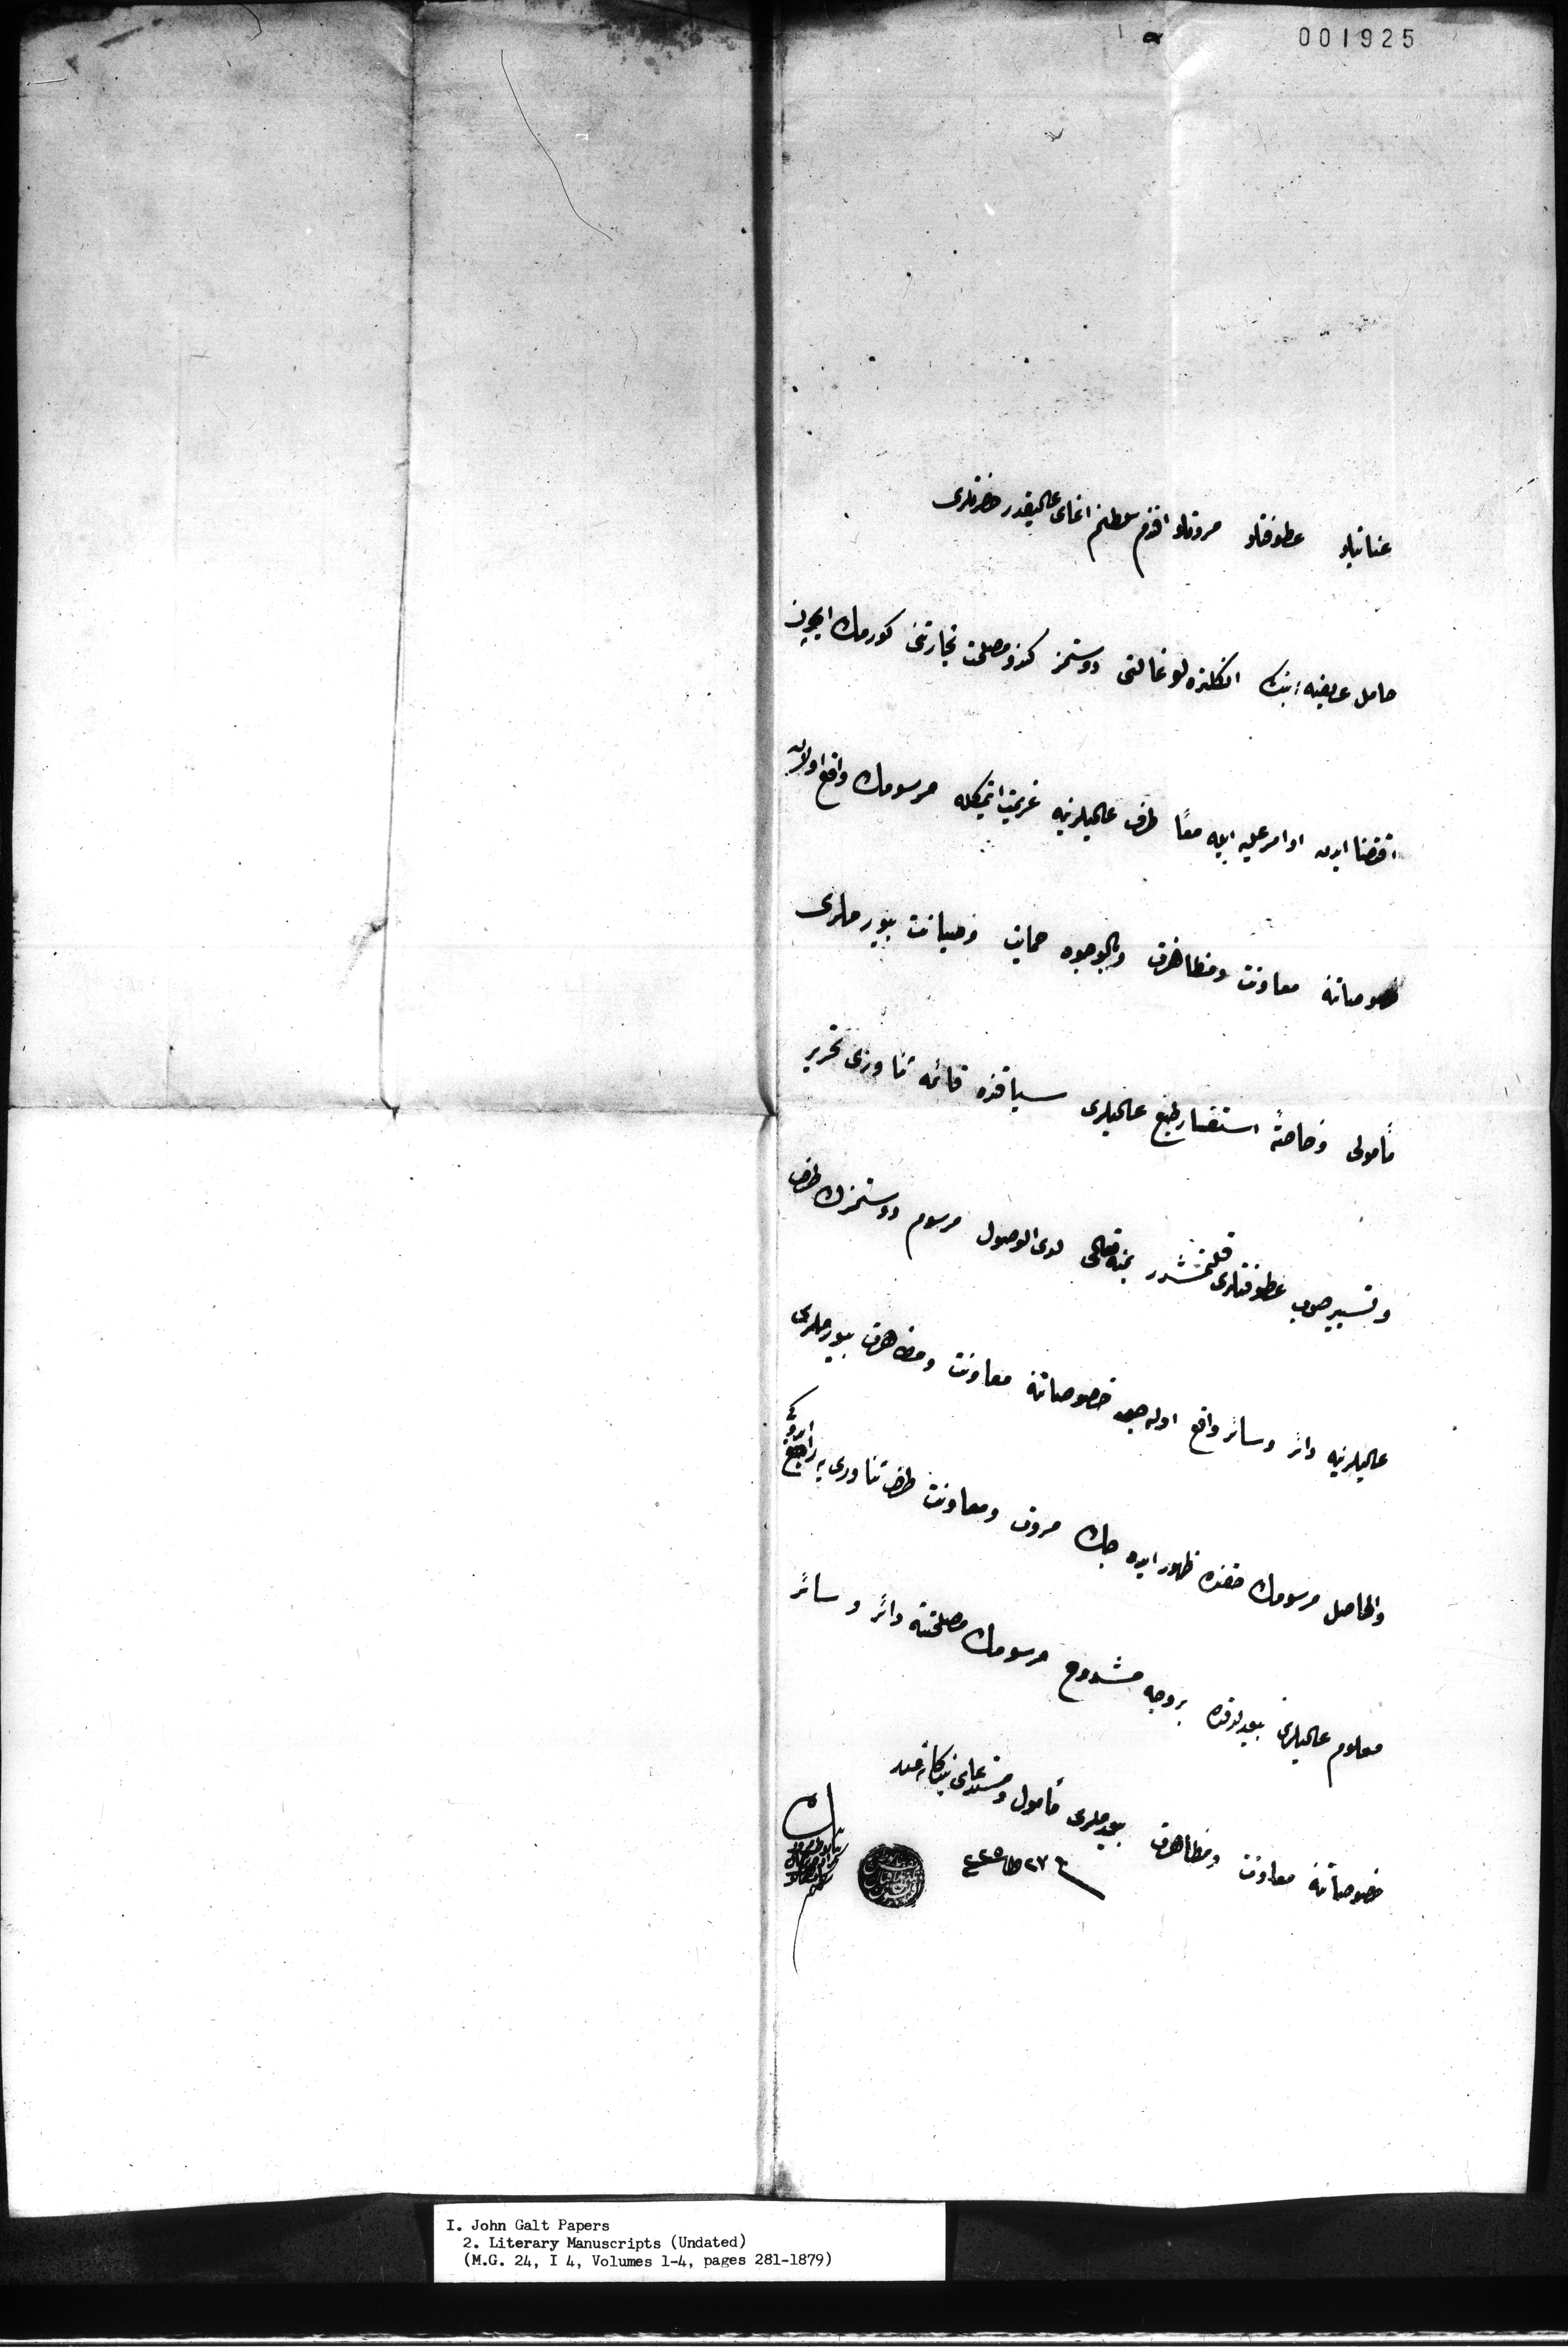 001925
عنايتلو عطوفتلو مروتلو افندم سلطانم اغای عاليقدر حضرتلری
حامل عريضه انكلتره لو غالتی دوستمز كندو مصلحت تجارتنی كورمك ايچون
اقتضا ايدن اوامر عليه ايله معًا طرف عاليلرينه عزيمت ايتمكله مرسومك واقع اولان
خصوصاتنه معاونت ومظاهرت وبالوجوه حمايت وصيانت بيورملری
مأمولی وخاصةً استفسار طبع عاليلری سياقنده قائمه ثناوری تحرير
وتسيير صوب عطوفتلری قلنمشدر بمنه تعالی لدی الوصول مرسوم دوستمزك طرف
عاليلرينه دائر وسائر واقع اوله جق خصوصاتنه معاونت ومظاهرت بيورملری
والحاصل مرسومك حقنده ظهور ايده جك مروت ومعاونت طرف ثناوری يه راجع ايدوكی
معلوم عاليلری بيورلدقده بروجه مشروح مرسومك مصلحتنه دائر وسائر
خصوصاتنه معاونت ومظاهرت بيورملری مأمول ومستدعای
٢٧ ٢٢٥
I. John Galt Papers
2. Literary Manuscripts (Undated)
(M.G. 24, I 4, Volumes 1-4, pages 281-1879)